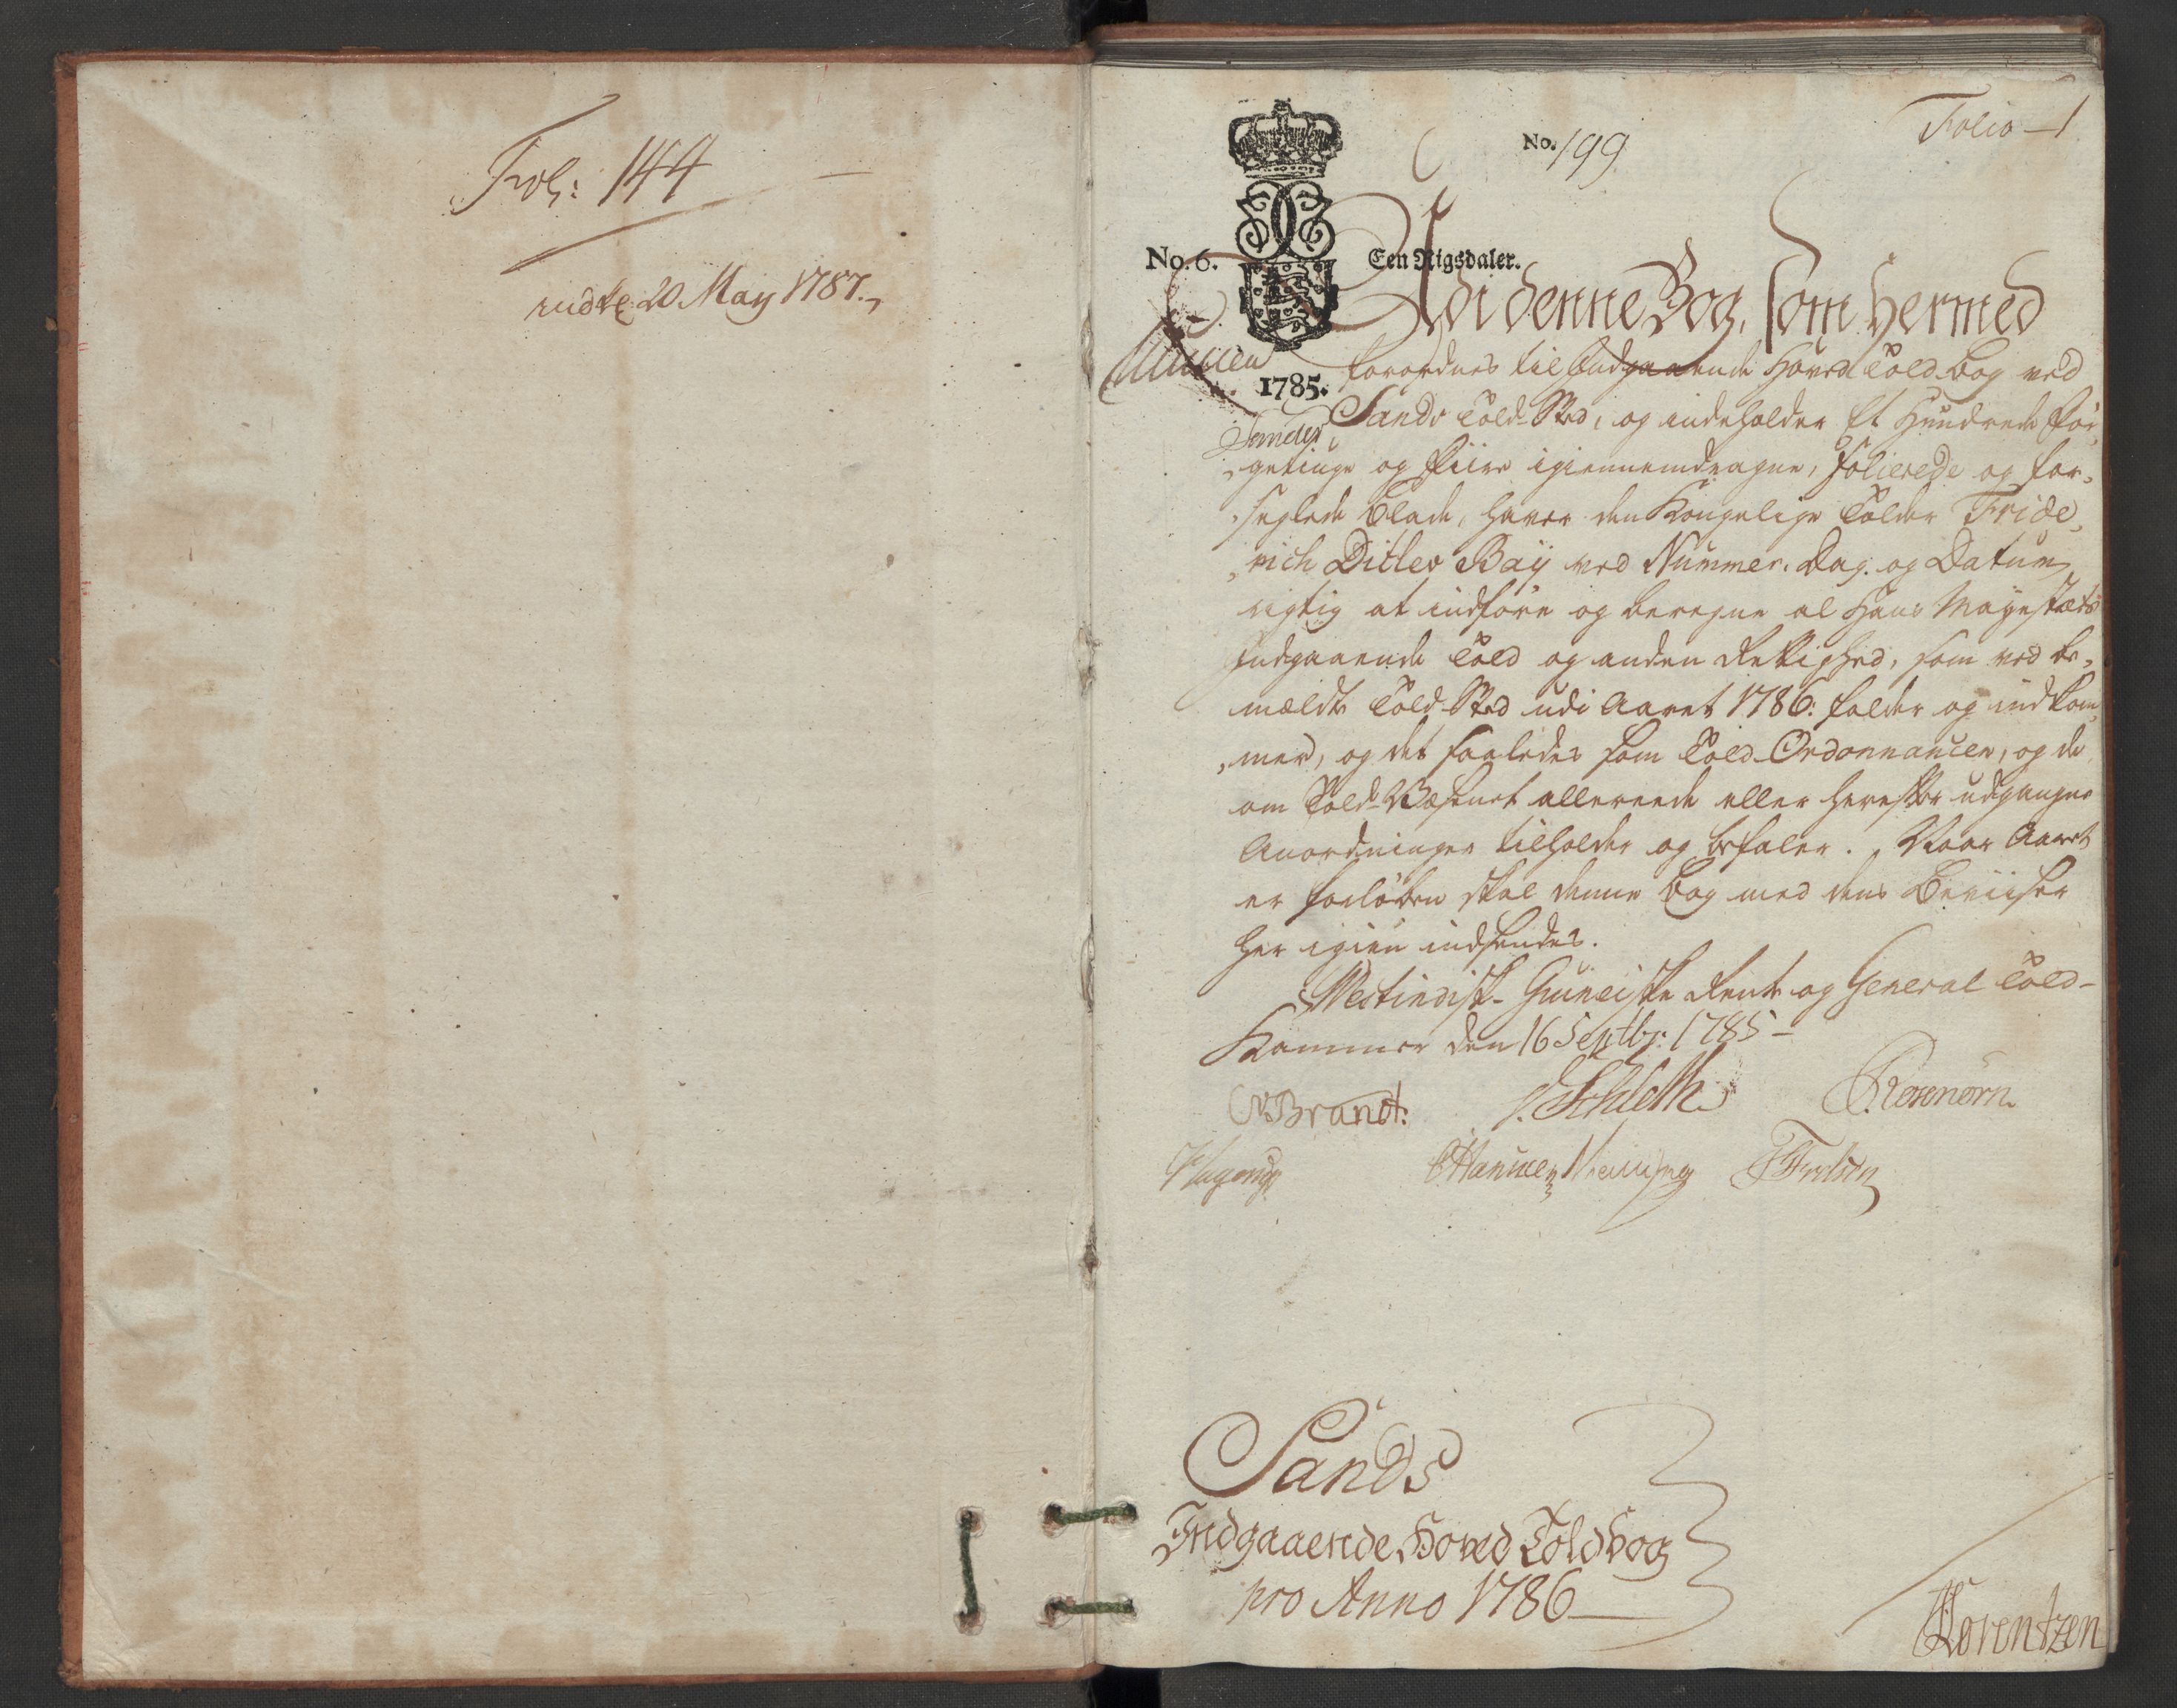 Fol: 144
rudtl 20 May 1787.
Folio - 1
No. 199
No. 6. Een Rigsdaler.
1785.
Udi denne Bog, som hermed
forordnes til Indgaaende Hoved Told bog ved
Sands Told-Sted, og indeholder Et Hundrede För,
getiuge og Fiire igiennemdragne, Folierede og for,
seglede Blade, haver den Kongelige Tolder Fride,
rich Ditlev Baÿ ved Nummer, Dag og Datum
rigtig at indføre og beregne al Hans Mayestæts
Indgaaende Told og anden Rettighed, som ved be,
meldte Told-Sted udi Aaret 1786: falder og indkom,
mer, og det saaledes som Told-Ordonnancen, og de
om Told-Væsenet allereede eller herefter udgangne
Anordninger tilholder og befaler. Naar Aaret
er forløben skal denne Bog med dens Beviiser
her igien indsendes.
Westindisk-Guineiske Rente og General Told-
Kammer den 16 Septbr: 1785 -
Brandt: Schleth Rosenörn
Sands
Indgaaende Hoved Toldbog
pro Anno 1786
Lorentzen